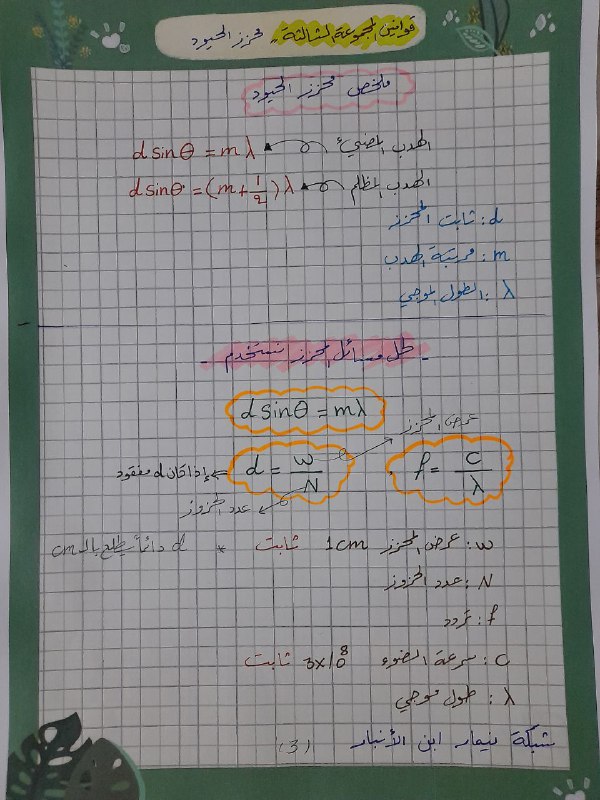 قوانين المجموعة الثالثة - محزز الحيود
ملخص محزز الحيود
الهدب المضيئ d sinθ = mλ
الهدب المظلم d sinθ = (m + 1/2) λ
d: ثابت المحزز
m: مرتبة الهدب
λ: الطول الموجي
- حل مسائل محزز نستخدم -
d sinθ = mλ
عرض المحزز
f = C/λ , d = w/N ⇐ إذا كان d مفقود
عدد الحزوز
w: عرض المحزز 1cm ثابت * d دائماً يطلع بالـ cm
N: عدد الحزوز
f: تردد
C: سرعة الضوء 3x10⁸ ثابت
λ: طول موجي
شبكة نيمار ابن الأنبار (3)